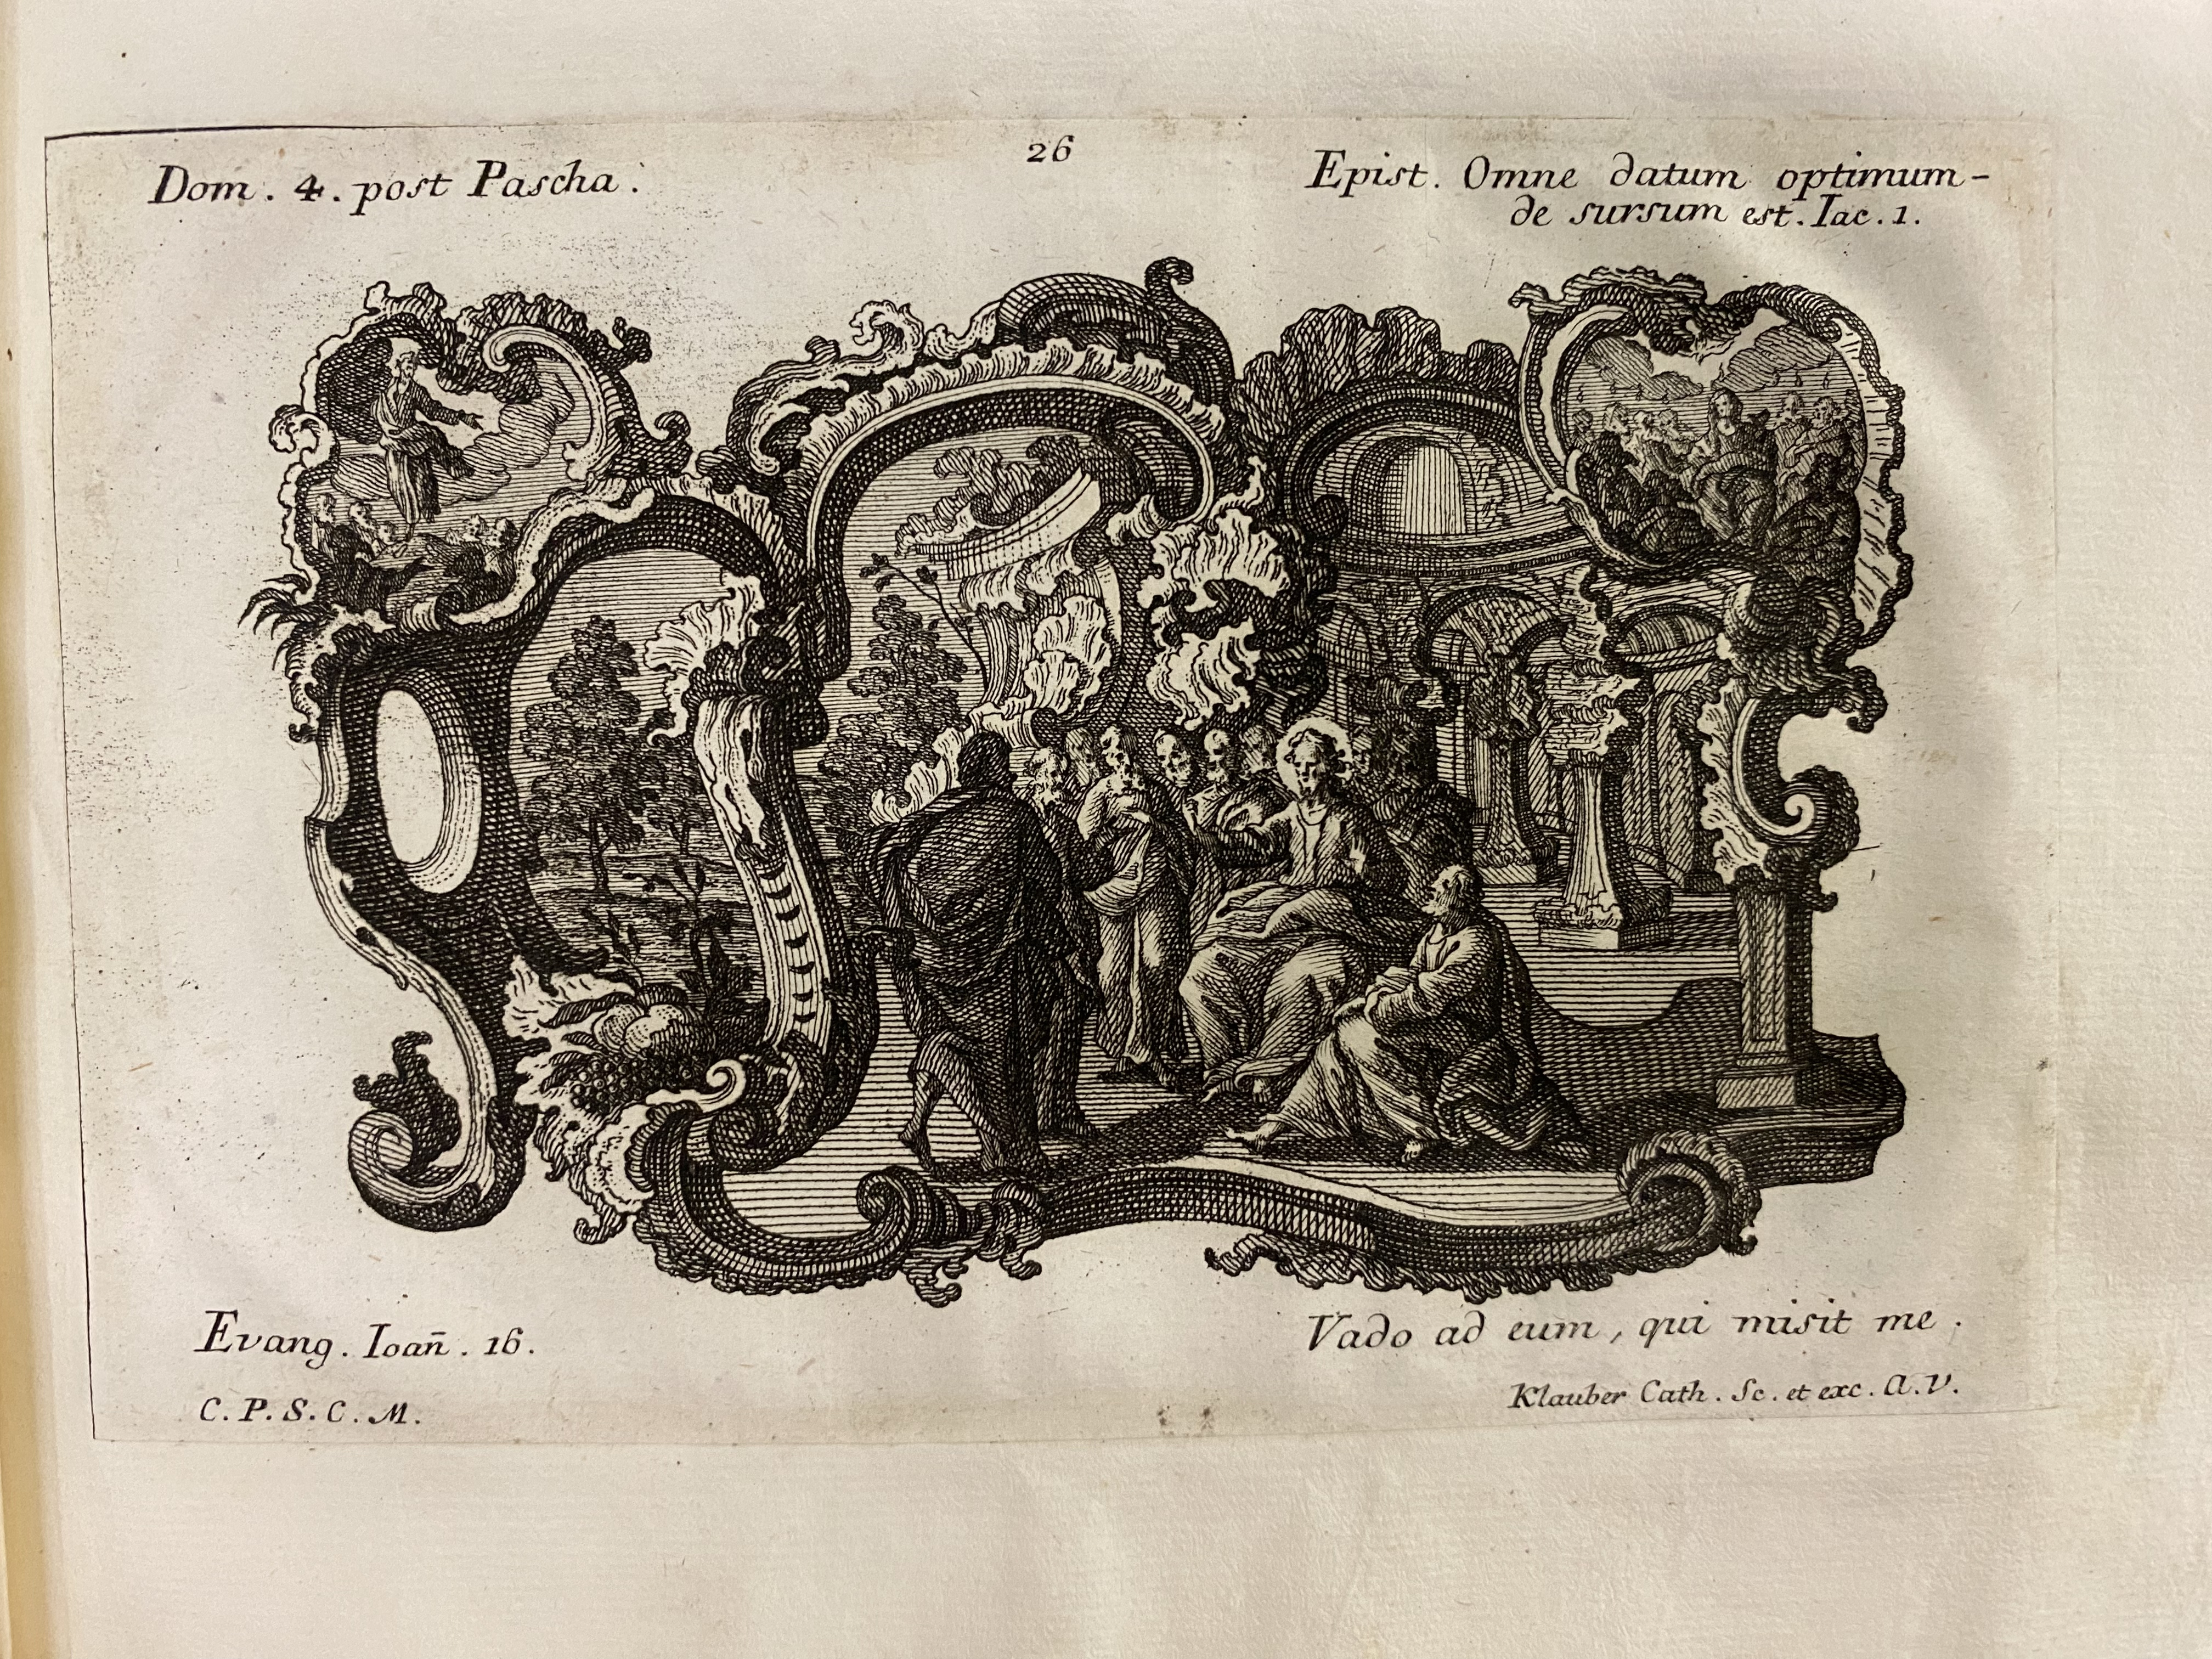 26
Dom. 4. post Pascha.
Epist. Omne datum optimum-
de sursum est. Iac. 1.
Evang. Ioan̄. 16.
Vado ad eum, qui misit me.
C. P. S. C. M.
Klauber Cath. Sc. et exc. A. V.